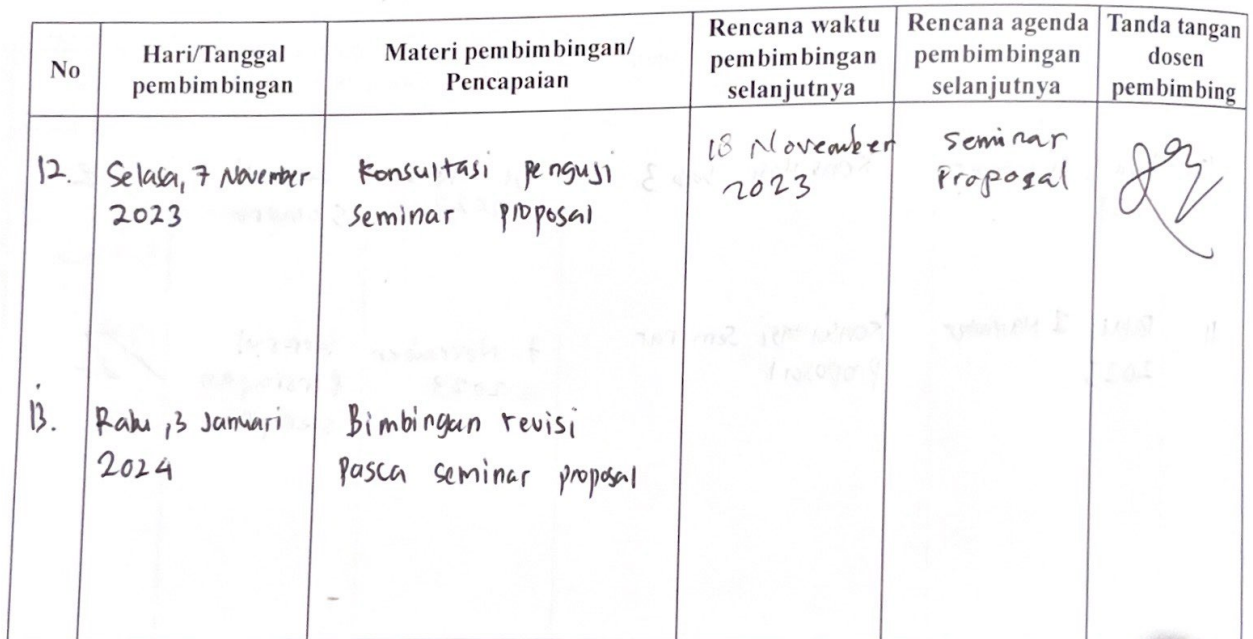 No
Hari/Tanggal
pembimbingan
Materi pembimbingan/
Pencapaian
Rencana waktu
pembimbingan
selanjutnya
Rencana agenda
pembimbingan
selanjutnya
Tanda tangan
dosen
pembimbing
12.
Selasa, 7 November
2023
Konsultasi penguji
seminar proposal
18 November
2023
Seminar
Proposal
13.
Rabu, 3 Januari
2024
Bimbingan revisi
Pasca seminar proposal